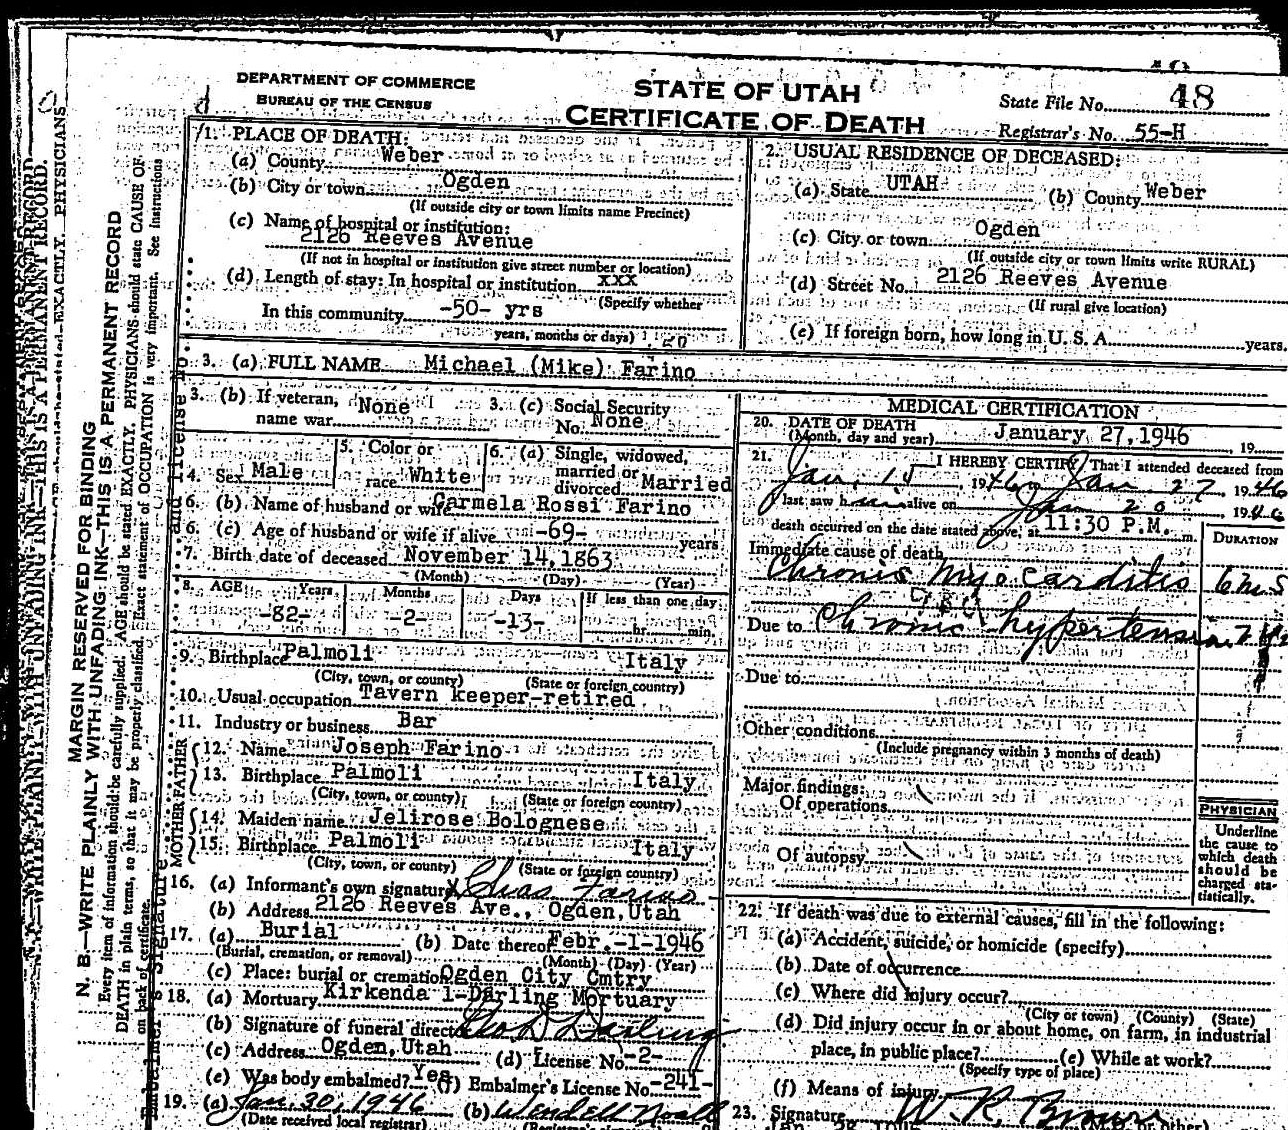 DEPARTMENT OF COMMERCE
BUREAU OF THE CENSUS
STATE OF UTAH
CERTIFICATE OF DEATH
State File No. 48
Registrar's No. 55-H
MARGIN RESERVED FOR BINDING
N. B.—WRITE PLAINLY WITH UNFADING INK—THIS IS A PERMANENT RECORD
Every item of information should be carefully supplied. AGE should be stated EXACTLY. PHYSICIANS should state CAUSE OF
DEATH in plain terms, so that it may be properly classified. Exact statement of OCCUPATION is very important. See instructions
on back of certificate.
1. PLACE OF DEATH:
(a) County Weber
(b) City or town Ogden
(If outside city or town limits name Precinct)
(c) Name of hospital or institution:
2126 Reeves Avenue
(If not in hospital or institution give street number or location)
(d) Length of stay: In hospital or institution xxx
(Specify whether
In this community -50- yrs
years, months or days)
2. USUAL RESIDENCE OF DECEASED:
(a) State UTAH (b) County Weber
(c) City or town Ogden
(If outside city or town limits write RURAL)
(d) Street No. 2126 Reeves Avenue
(If rural give location)
(e) If foreign born, how long in U. S. A. years.
3. (a) FULL NAME Michael (Mike) Farino
3. (b) If veteran, name war None
3. (c) Social Security No. None
4. Sex Male
5. Color or race White
6. (a) Single, widowed, married or divorced Married
6. (b) Name of husband or wife Carmela Rossi Farino
6. (c) Age of husband or wife if alive -69- years
7. Birth date of deceased November 14, 1863
(Month) (Day) (Year)
8. AGE Years Months Days If less than one day
-82- -2- -13- hr. min.
9. Birthplace Palmoli Italy
(City, town, or county) (State or foreign country)
10. Usual occupation Tavern keeper-retired
11. Industry or business Bar
FATHER
12. Name Joseph Farino
13. Birthplace Palmoli Italy
(City, town, or county) (State or foreign country)
MOTHER
14. Maiden name Jelirose Bolognese
15. Birthplace Palmoli Italy
(City, town, or county) (State or foreign country)
16. (a) Informant's own signature X Chas Farino
(b) Address 2126 Reeves Ave., Ogden, Utah
17. (a) Burial (b) Date thereof Febr.-1-1946
(Burial, cremation, or removal) (Month) (Day) (Year)
(c) Place: burial or cremation Ogden City Cmtry
18. (a) Mortuary Kirkenda l-Darling Mortuary
(b) Signature of funeral director Geo D Darling
(c) Address Ogden, Utah (d) License No. -2-
(e) Was body embalmed? Yes (f) Embalmer's License No. -241-
19. (a) Jan. 30, 1946 (b) Wendell Noall
(Date received local registrar)
MEDICAL CERTIFICATION
20. DATE OF DEATH
(Month, day and year) January 27, 1946 19
21. I HEREBY CERTIFY, That I attended deceased from
Jan. 15 1946 to Jan 27, 1946
I last saw him alive on Jan 20 1946
death occurred on the date stated above, at 11:30 P.M. m.
DURATION
Immediate cause of death
Chronic Myocarditis 6 ms
Due to Chronic hypertension
Due to
Other conditions
(Include pregnancy within 3 months of death)
Major findings:
Of operations
Of autopsy
PHYSICIAN
Underline
the cause to
which death
should be
charged sta-
tistically.
22. If death was due to external causes, fill in the following:
(a) Accident, suicide, or homicide (specify)
(b) Date of occurrence
(c) Where did injury occur?
(City or town) (County) (State)
(d) Did injury occur in or about home, on farm, in industrial
place, in public place? (e) While at work?
(Specify type of place)
(f) Means of injury
23. Signature W. R. Brown